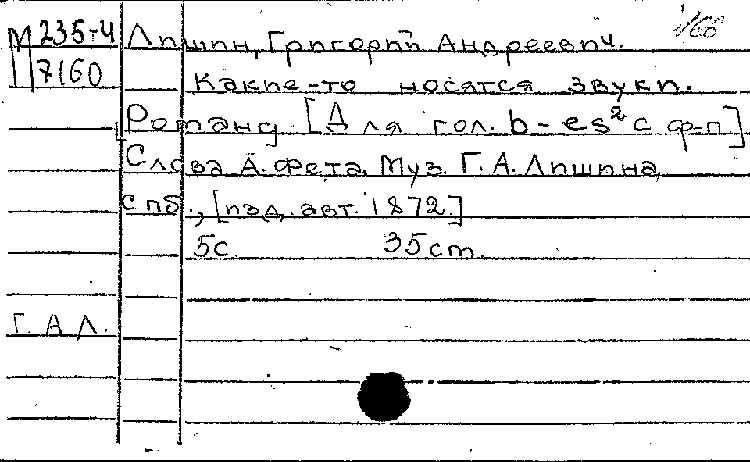 М 235-4 Лишин, Григорий Андреевич.
7160 Какие-то носятся звуки.
Романс [Для гол. b-es² с ф-п]
Слова А. Фета. Муз. Г. А. Лишина
Спб., [изд. авт. 1872.]
5с. 35cm.
Г. А. Л.